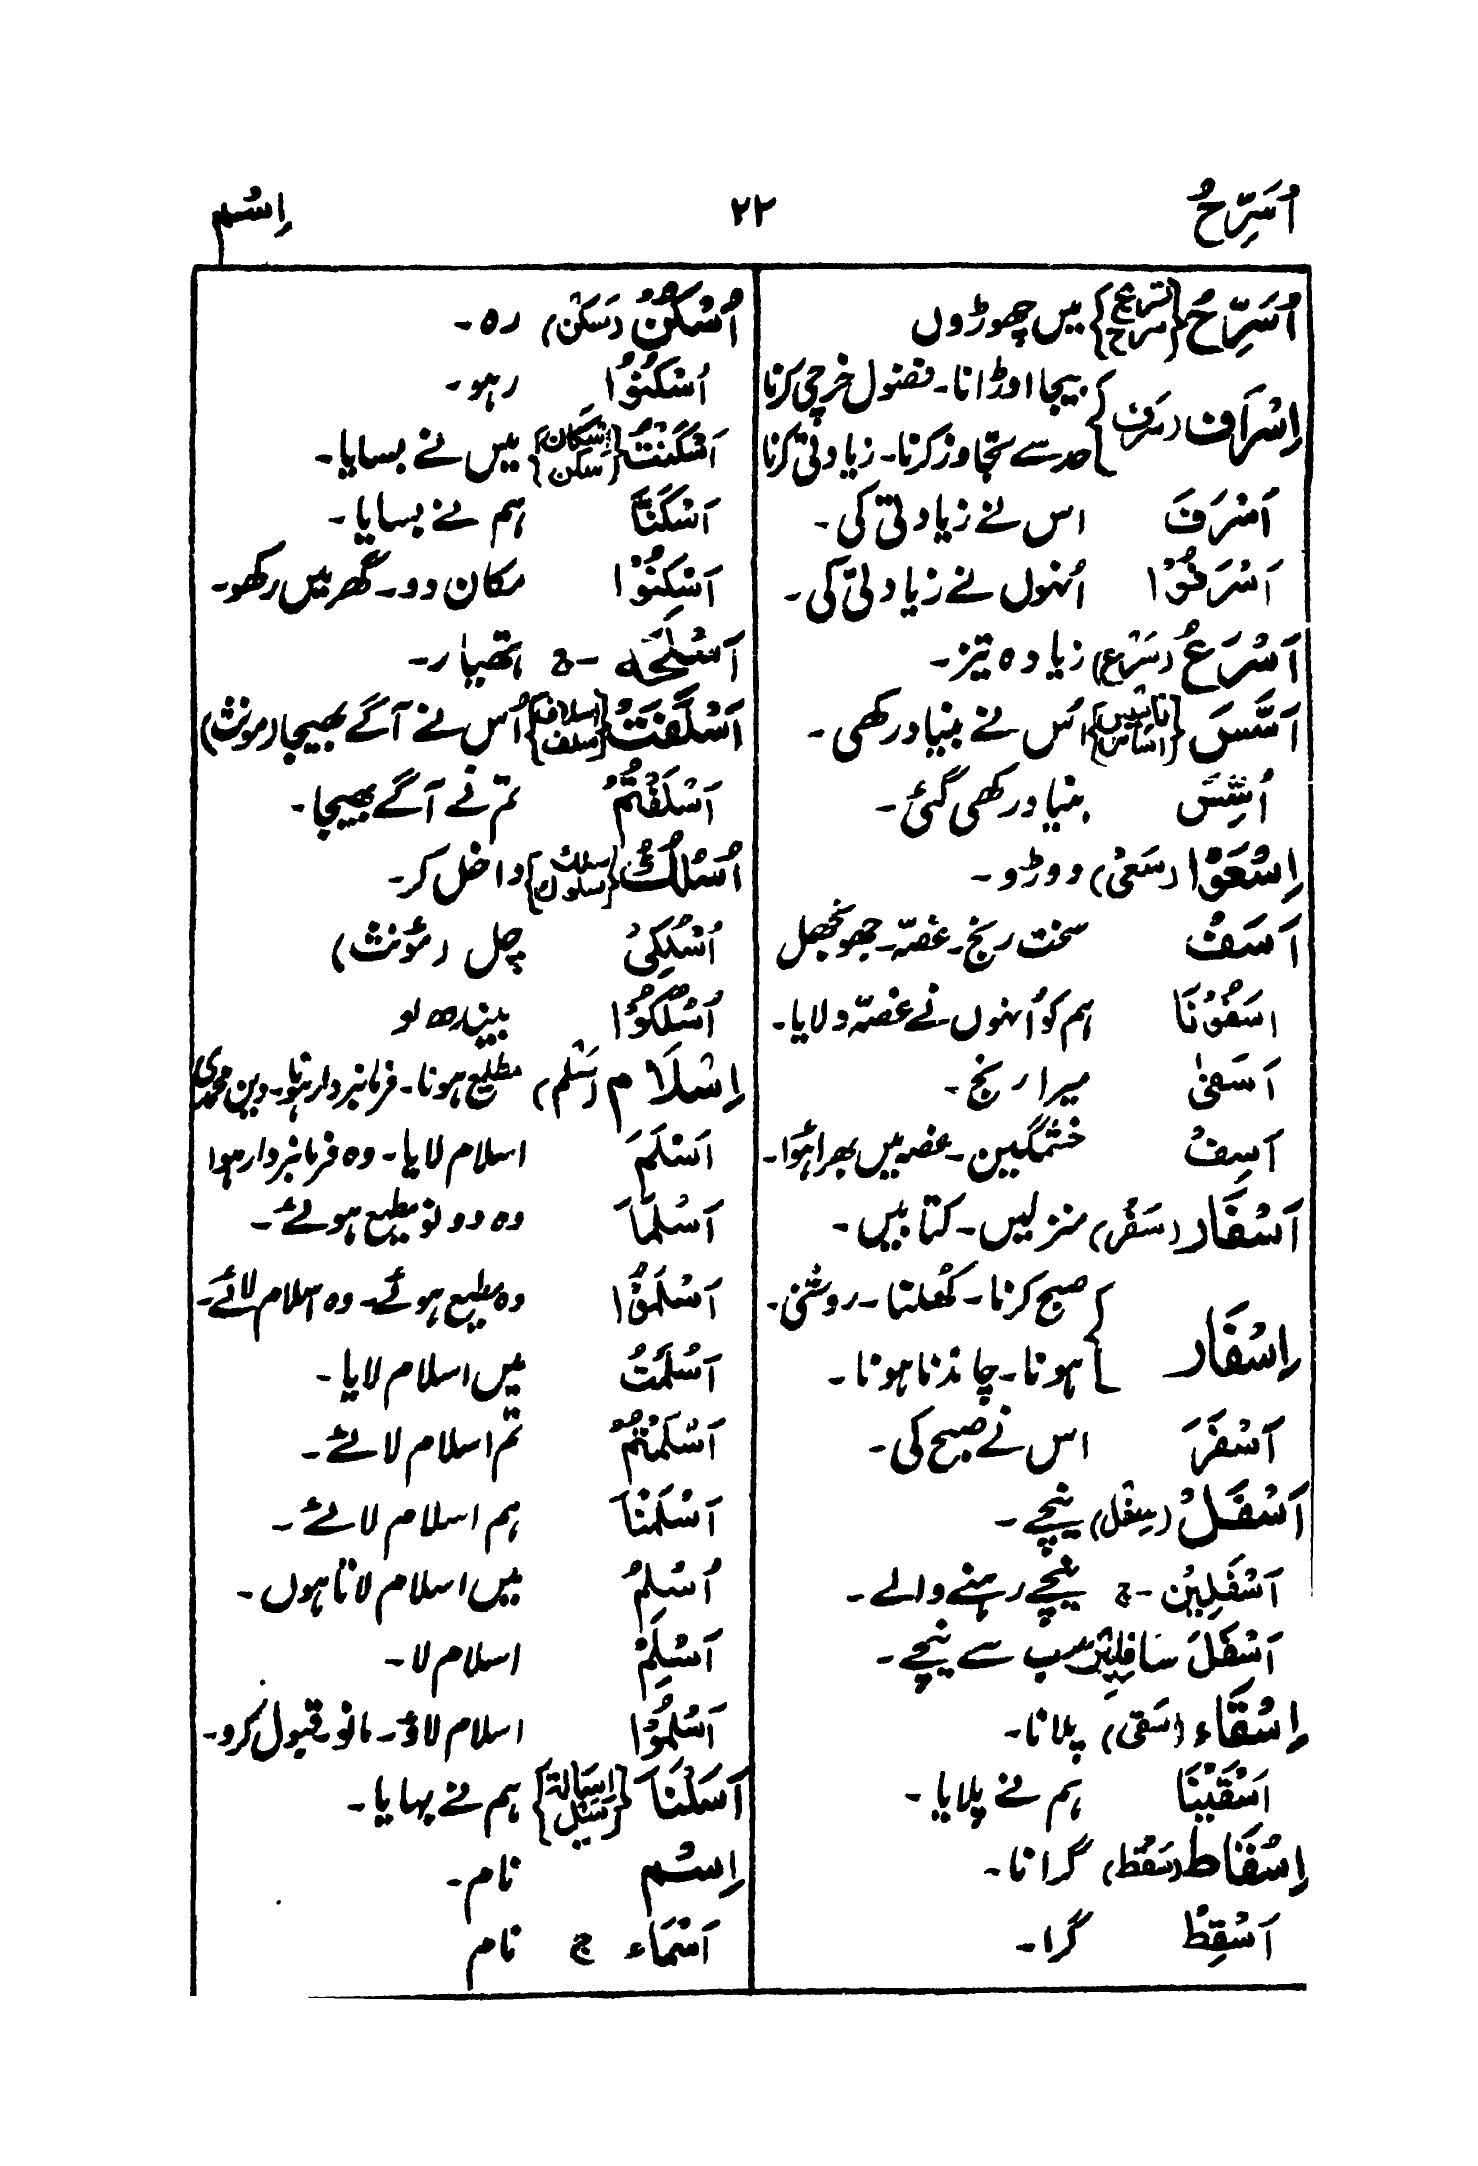 اُسَرِّحُ ۲۲ اِسْم
اُسَرِّحُ {تسریح سرح} میں چھوڑوں
اِسْرَاف (سَرف) } بیجا اوڑانا۔ فضول خرچی کرنا
حد سے تجاوز کرنا۔ زیادتی کرنا
اَسْرَفَ اس نے زیادتی کی۔
اَسْرَفُوْا اُنہوں نے زیادتی کی۔
اَسْرَعُ (سَرْع) زیادہ تیز۔
اَسَّسَ {تاسیس اساس} اُس نے بنیاد رکھی۔
اُسِّسَ بنیاد رکھی گئی۔
اِسْعَوْا (سَعْی) دوڑو۔
اَسَفْ سخت رنج۔ غصّہ۔ جھونجھل
اٰسَفُوْنَا ہم کو اُنہوں نے غصّہ دلایا۔
اَسَفیٰ میرا رنج۔
اَسِفْ خشمگیین۔ غصہ میں بھرا ہُوا۔
اَسْفَار (سَفْر) منزلیں۔ کتابیں۔
اِسْفَار } صبح کرنا۔ کُھلنا۔ روشنی۔
ہونا۔ چاندنا ہونا۔
اَسْفَرَ اس نے صبح کی۔
اَسْفَلُ (سِفْل) نیچے۔
اَسْفَلِیْن ۔ ج نیچے رہنے والے۔
اَسْفَلَ سَافِلِیْن سب سے نیچے۔
اِسْقَاء (سَقی) پلانا۔
اَسْقَیْنَا ہم نے پلایا۔
اِسْقَاط (سَقْط) گرانا۔
اَسْقِطْ گرا۔
اُسْکُنْ (سَکَن) رہ۔
اُسْکُنُوْا رہو۔
اَسْکَنْتُ {اِسْکَان سکن} میں نے بسایا۔
اَسْکَنَّا ہم نے بسایا۔
اَسْکِنُوْا مکان دو۔ گھر میں رکھو۔
اَسْلِحَہ ۔ ج ہتھیار۔
اَسْلَفَتْ {اسلاف سلف} اُس نے آگے بھیجا (مونث)
اَسْلَفْتُمْ تم نے آگے بھیجا۔
اُسْلُكْ {سلك سلوك} داخل کر۔
اُسْلُکِیْ چل (مؤنث)
اُسْلُکُوْا بیندھ لو
اِسْلَام (سَلْم) مطیع ہونا۔ فرمانبردار ہونا۔ دین محمدی
اَسْلَمَ اسلام لایا۔ وہ فرمانبردار ہوا
اَسْلَمَا وہ دونو مطیع ہوئے۔
اَسْلَمُوْا وہ مطیع ہوئے۔ وہ اسلام لائے۔
اَسْلَمْتُ میں اسلام لایا۔
اَسْلَمْتُمْ تم اسلام لائے۔
اَسْلَمْنَا ہم اسلام لائے۔
اُسْلِمُ میں اسلام لاتا ہوں۔
اَسْلِمْ اسلام لا۔
اَسْلِمُوْا اسلام لاؤ۔ مانو۔ قبول کرو۔
اَسَلْنَا {اِسَالَة سَیْل} ہم نے بہایا۔
اِسْم نام۔
اَسْمَاء ج نام